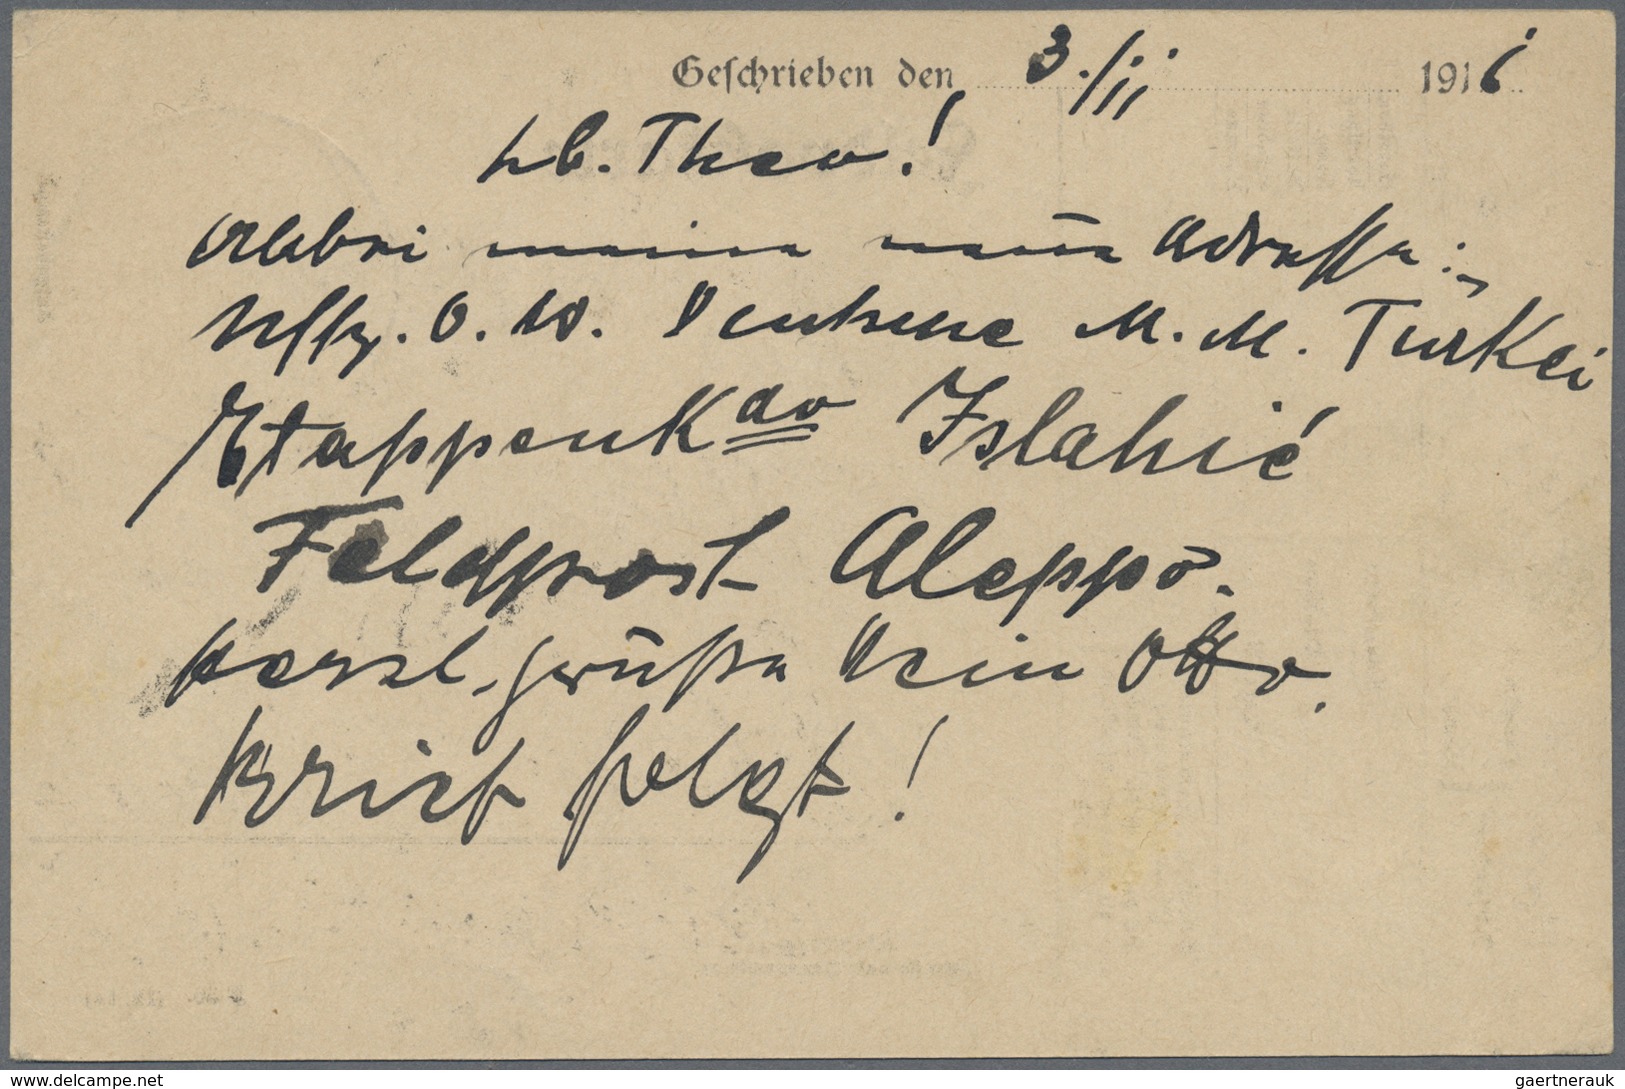 Geschrieben den 3./II 1916
Lb. Theo!
Anbei meine neue Adresse:
Uffz. O. W. Deutsche M. M. Türkei
Etappenkdo Islahié
Feldpost Aleppo.
Herzl. Grüße Dein Otto.
Brief folgt!
gaertnerauk